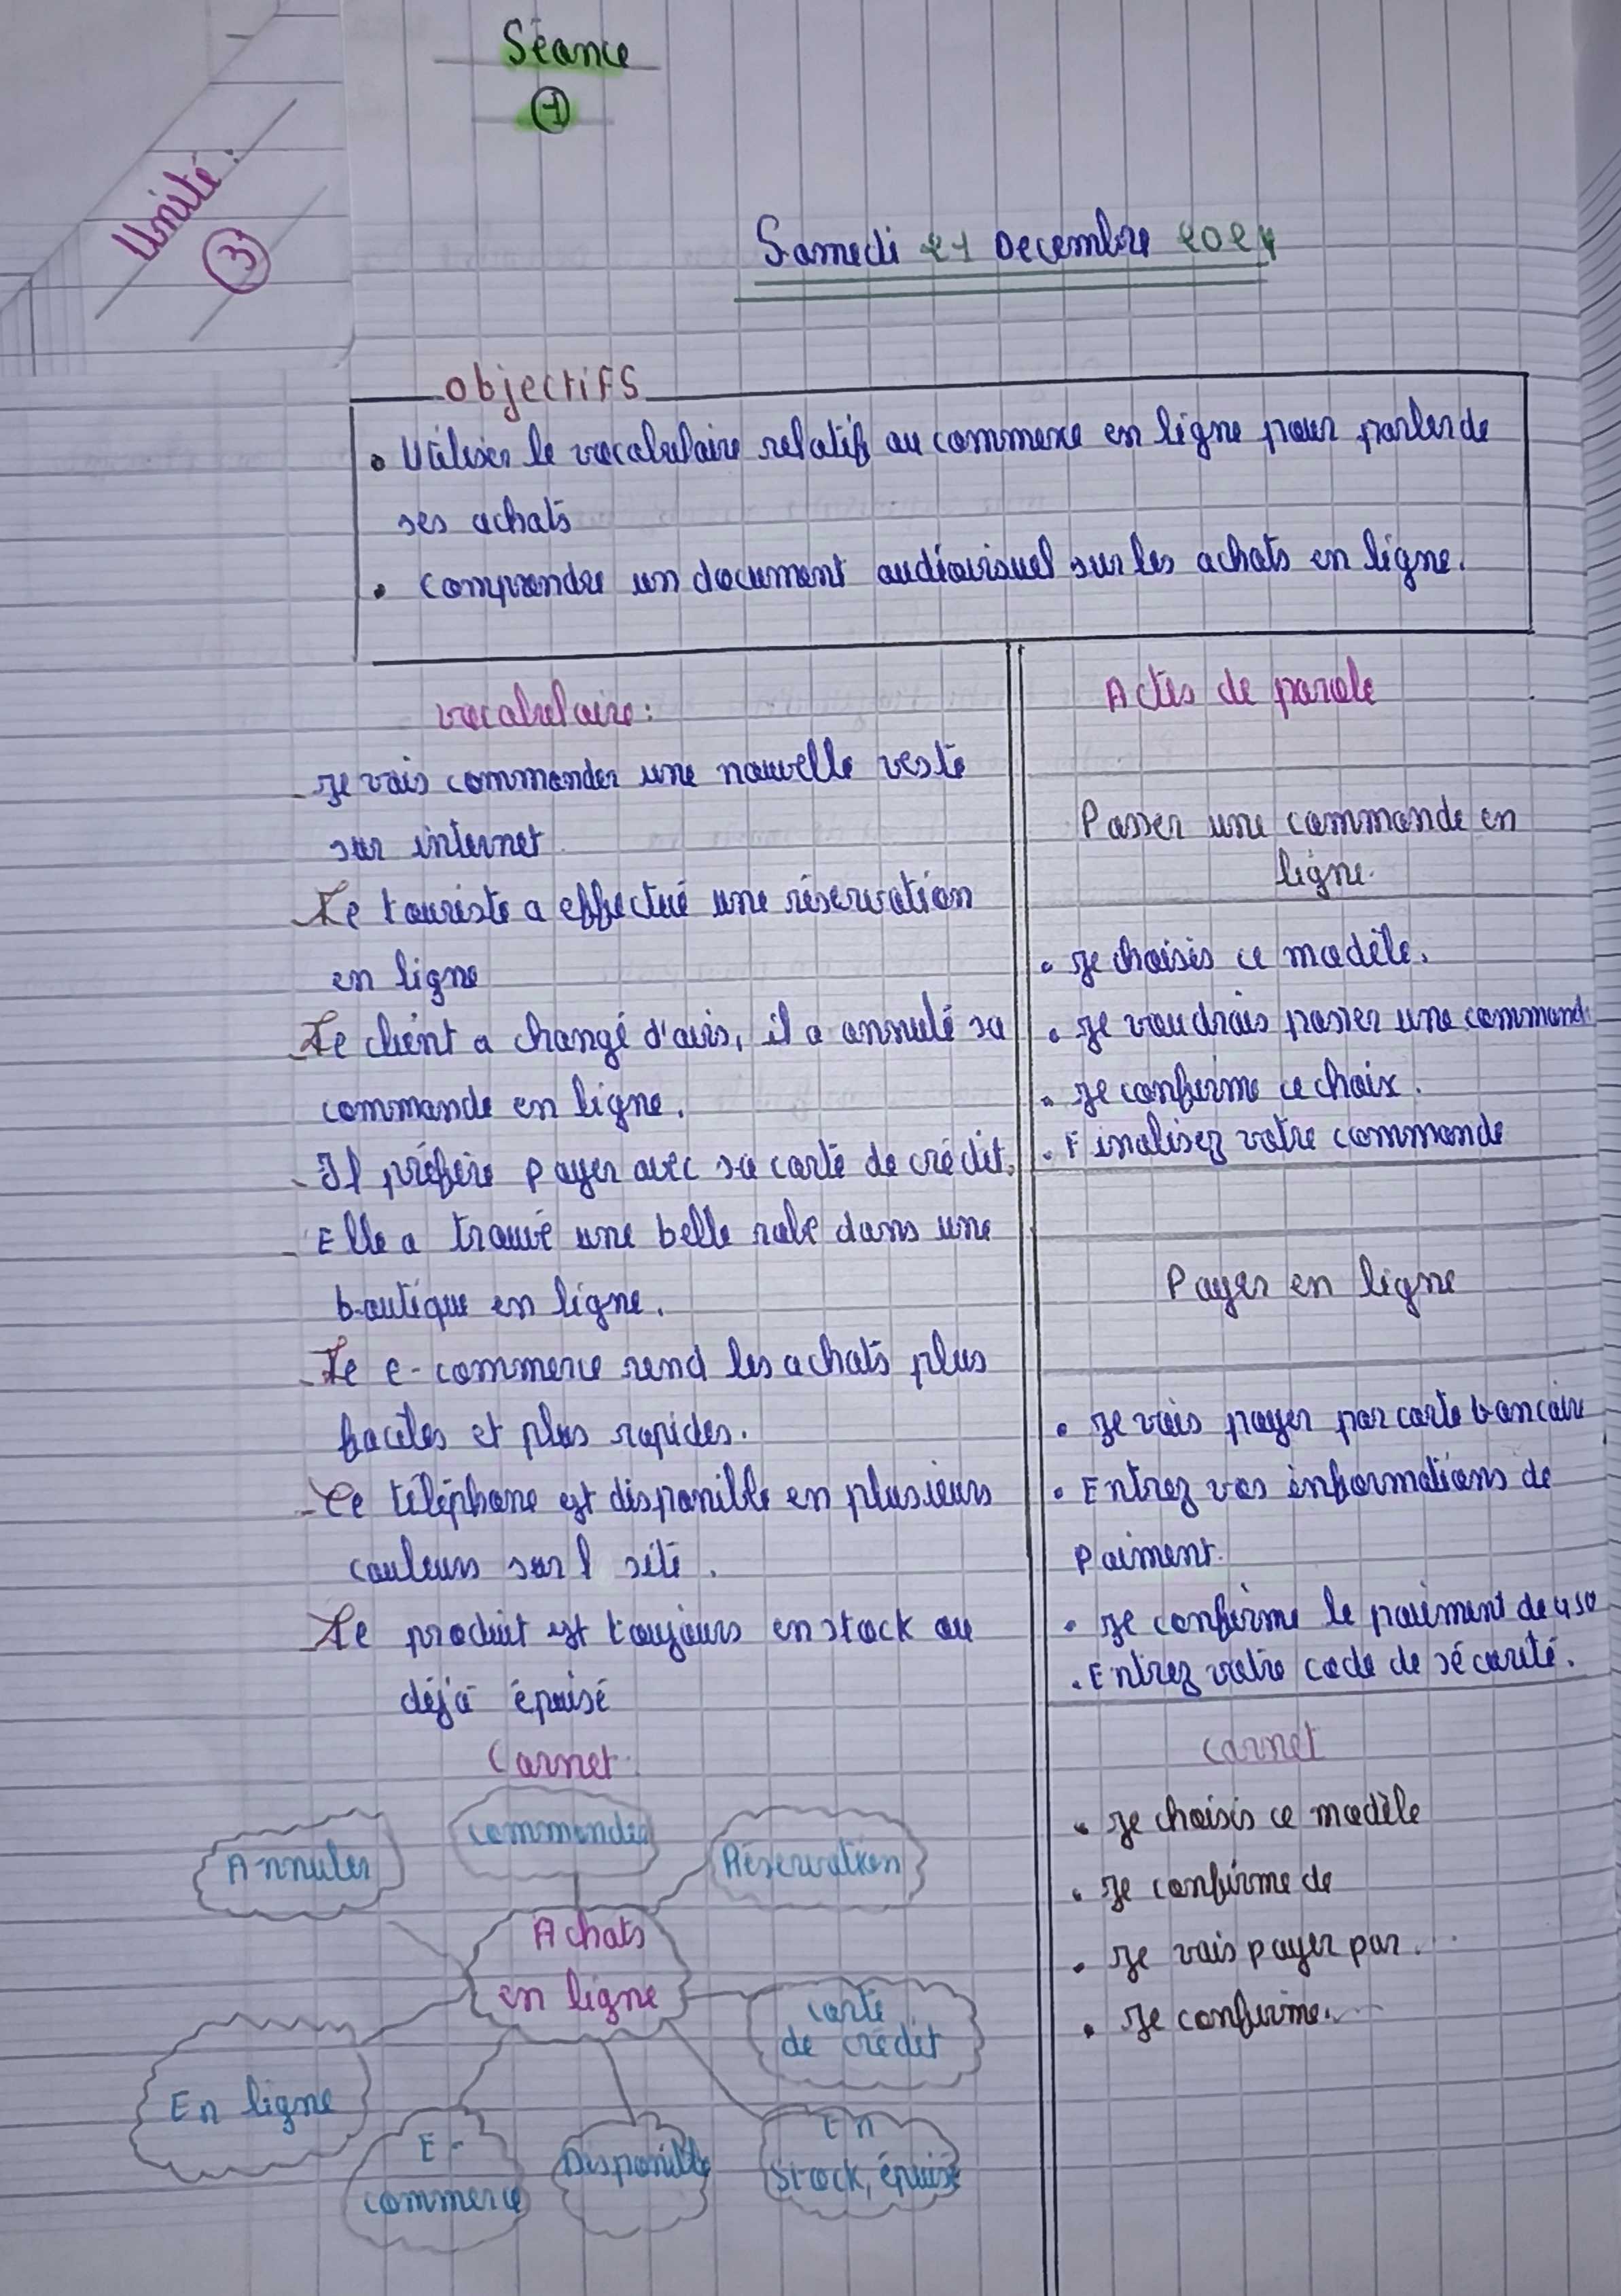 Séance
1
Unité :
3
Samedi 21 Decembre 2024
Objectifs
• Utiliser le vocabulaire relatif au commerce en ligne pour parler de
ses achats
• comprendre un document audiovisuel sur les achats en ligne.
vocabulaire:
- Je vais commander une nouvelle veste
sur internet.
- Le touriste a effectué une réservation
en ligne
- Le client a changé d'avis, il a annulé sa
commande en ligne.
- Il préfère payer avec sa carte de crédit.
- Elle a trouvé une belle robe dans une
boutique en ligne.
- Le e-commerce rend les achats plus
faciles et plus rapides.
- Ce téléphone est disponible en plusieurs
couleurs sur l site.
- Le produit est toujours en stock ou
déjà épuisé
Carnet.
Annuler
commander
Réservation
Achats
en ligne
carte
de crédit
En ligne
E-
commerce
Disponible
En
stock, épuisé
Actes de parole
Passer une commande en
ligne.
• Je choisis ce modèle.
• Je voudrais passer une commande
• Je confirme ce choix.
• Finalisez votre commande
Payer en ligne
• Je vais payer par carte bancaire
• Entrez vos informations de
paiment.
• Je confirme le paiment de 450
• Entrez votre code de sécurité.
carnet
• Je choisis ce modèle
• Je confirme de
• Je vais payer par...
• Je confirme...